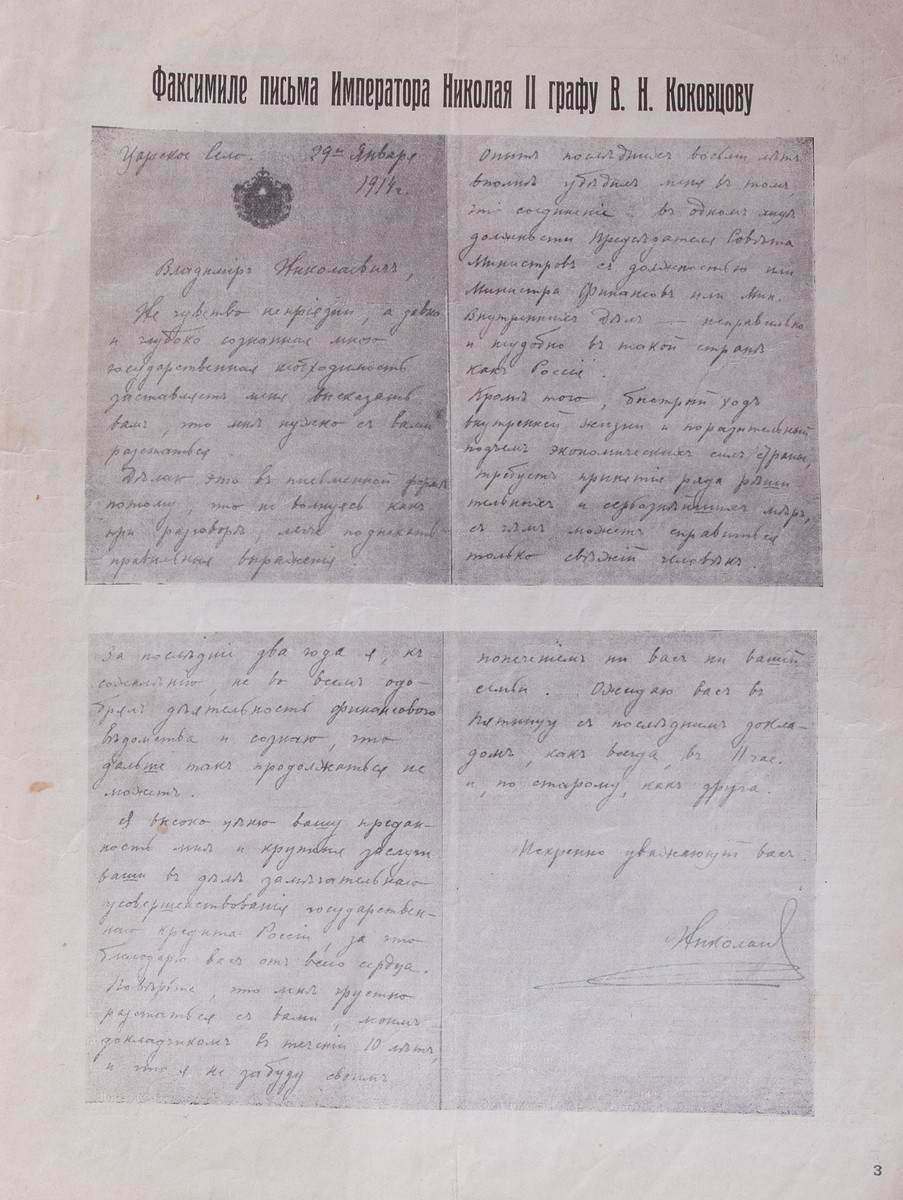 Факсимиле письма Императора Николая II графу В. Н. Коковцову
Царское Село. 29го Января
1914 г.
Владиміръ Николаевичъ,
Не чувство непріязни, а давно
и глубоко сознанная мною
государственная необходимость
заставляетъ меня высказать
вамъ, что мнѣ нужно съ вами
разстаться.
Дѣлаю это въ письменной формѣ
потому, что не волнуясь какъ
при разговорѣ, легче подыскать
правильныя выраженія.
Опытъ послѣднихъ восьми лѣтъ
вполнѣ убѣдилъ меня въ томъ,
что соединеніе въ одномъ лицѣ
должности Предсѣдателя Совѣта
Министровъ съ должностью или
Министра Финансовъ или Мин.
Внутреннихъ Дѣлъ — неправильно
и неудобно въ такой странѣ
какъ Россія.
Кромѣ того, быстрый ходъ
внутренней жизни и поразительный
подъемъ экономическихъ силъ страны,
требуетъ принятія ряда рѣши
тельныхъ и серьознѣйшихъ мѣръ,
съ чѣмъ можетъ справиться
только свѣжій человѣкъ.
За послѣдніе два года я, къ
сожалѣнію, не во всемъ одо-
брялъ дѣятельность финансоваго
вѣдомства и сознаю, что
дальше такъ продолжаться не
можетъ.
Я высоко цѣню вашу предан-
ность мнѣ и крупныя заслуги
ваши въ дѣлѣ замѣчательнаго
усовершенствованія государствен-
наго кредита Россіи, за что
благодарю васъ отъ всего сердца.
Повѣрьте, что мнѣ грустно
разстаться съ вами, моимъ
докладчикомъ въ теченіи 10 лѣтъ,
и что я не забуду своимъ
попеченіемъ ни васъ ни вашей
семьи. Ожидаю васъ въ
Пятницу съ послѣднимъ докла-
домъ, какъ всегда, въ 11 час.
и, по старому, какъ друга.
Искренно уважающій васъ
Николай
3